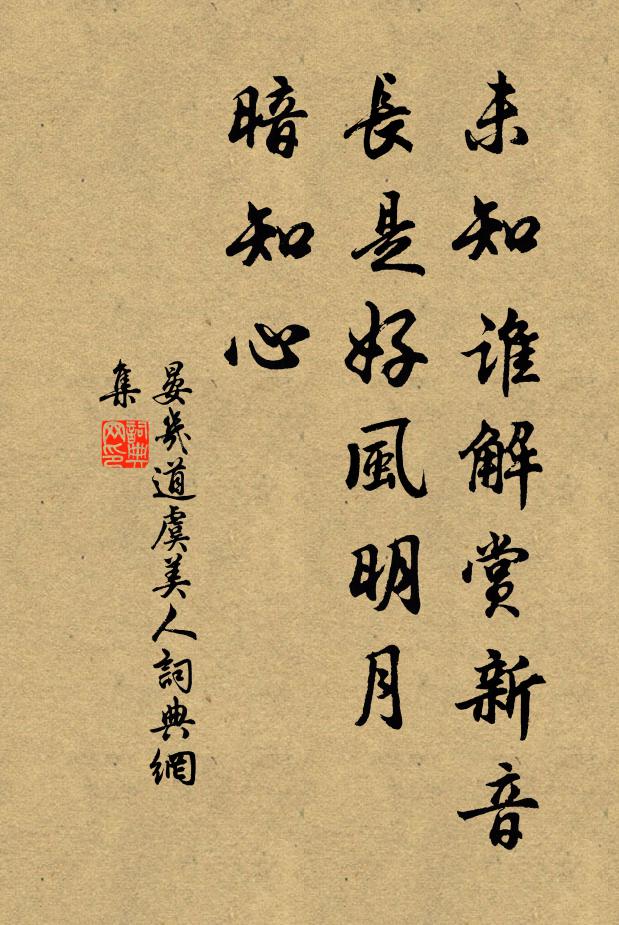 未知誰解賞新音
長是好風明月
暗知心
晏幾道虞美人詞典網
集
詞典
网印